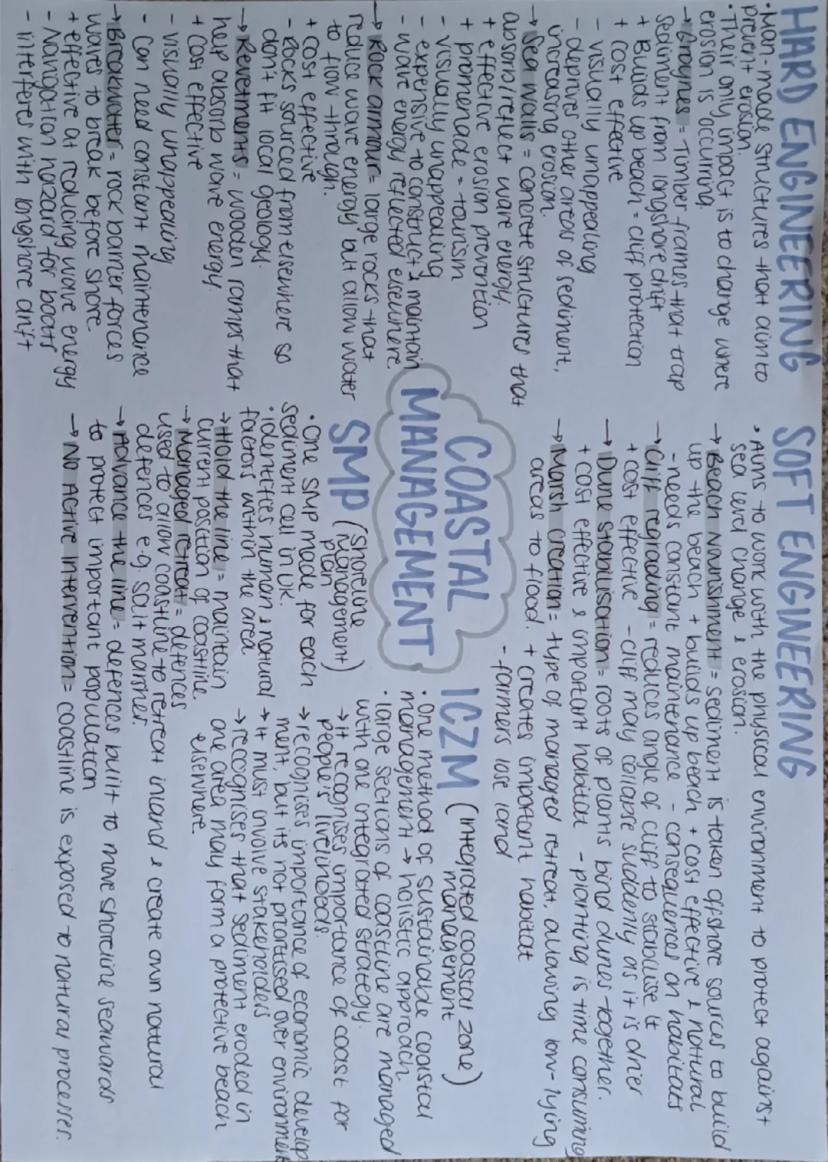 HARD ENGINEERING
• Man-made structures that aim to
prevent erosion.
• Their only impact is to change where
erosion is occurring.
→ Groynes = Timber frames that trap
sediment from longshore drift
+ Builds up beach = cliff protection
+ cost effective
- visually unappealing
- deprives other areas of sediment,
increasing erosion.
→ Sea walls = concrete structures that
absorb/reflect wave energy.
+ effective erosion prevention
+ promenade = tourism
- visually unappealing
- expensive to construct & maintain
- wave energy reflected elsewhere
→ Rock armour = large rocks that
reduce wave energy but allow water
to flow through.
+ cost effective
- Rocks sourced from elsewhere so
don't fit local geology.
→ Revetments = wooden ramps that
help absorb wave energy
+ Cost effective
- visually unappealing
- Can need constant maintenance
→ Breakwater = rock barrier forces
waves to break before shore
+ effective at reducing wave energy
- Navigation hazard for boats
- interferes with longshore drift
SOFT ENGINEERING
• Aims to work with the physical environment to protect against
sea level change & erosion.
→ Beach nourishment = sediment is taken offshore sources to build
up the beach + builds up beach + cost effective & natural
- needs constant maintenance - consequences on habitats
→ Cliff regrading = reduces angle of cliff to stabilise it
+ cost effective - cliff may collapse suddenly as it is drier
→ Dune stabilisation = roots of plants bind dunes together.
+ cost effective & important habitat - planting is time consuming
→ Marsh creation = type of managed retreat, allowing low-lying
areas to flood. + creates important habitat
- farmers lose land
COASTAL
MANAGEMENT
SMP (shoreline
management
plan)
• One SMP made for each
sediment cell in UK.
• identifies human & natural
factors within the area
→ Hold the line = maintain
current position of coastline.
→ Managed retreat = defences
used to allow coastline to retreat inland & create own natural
defences e.g. salt marshes.
→ Advance the line = defences built to move shoreline seawards
to protect important population
→ No Active Intervention = coastline is exposed to natural processes.
ICZM (integrated coastal zone
management)
• One method of sustainable coastal
management → holistic approach.
• large sections of coastline are managed
with one integrated strategy.
→ it recognises importance of coast for
people's livelihoods.
→ recognises importance of economic develop
ment, but its not prioritised over environment
→ it must involve stakeholders
→ recognises that sediment eroded in
one area may form a protective beach
elsewhere